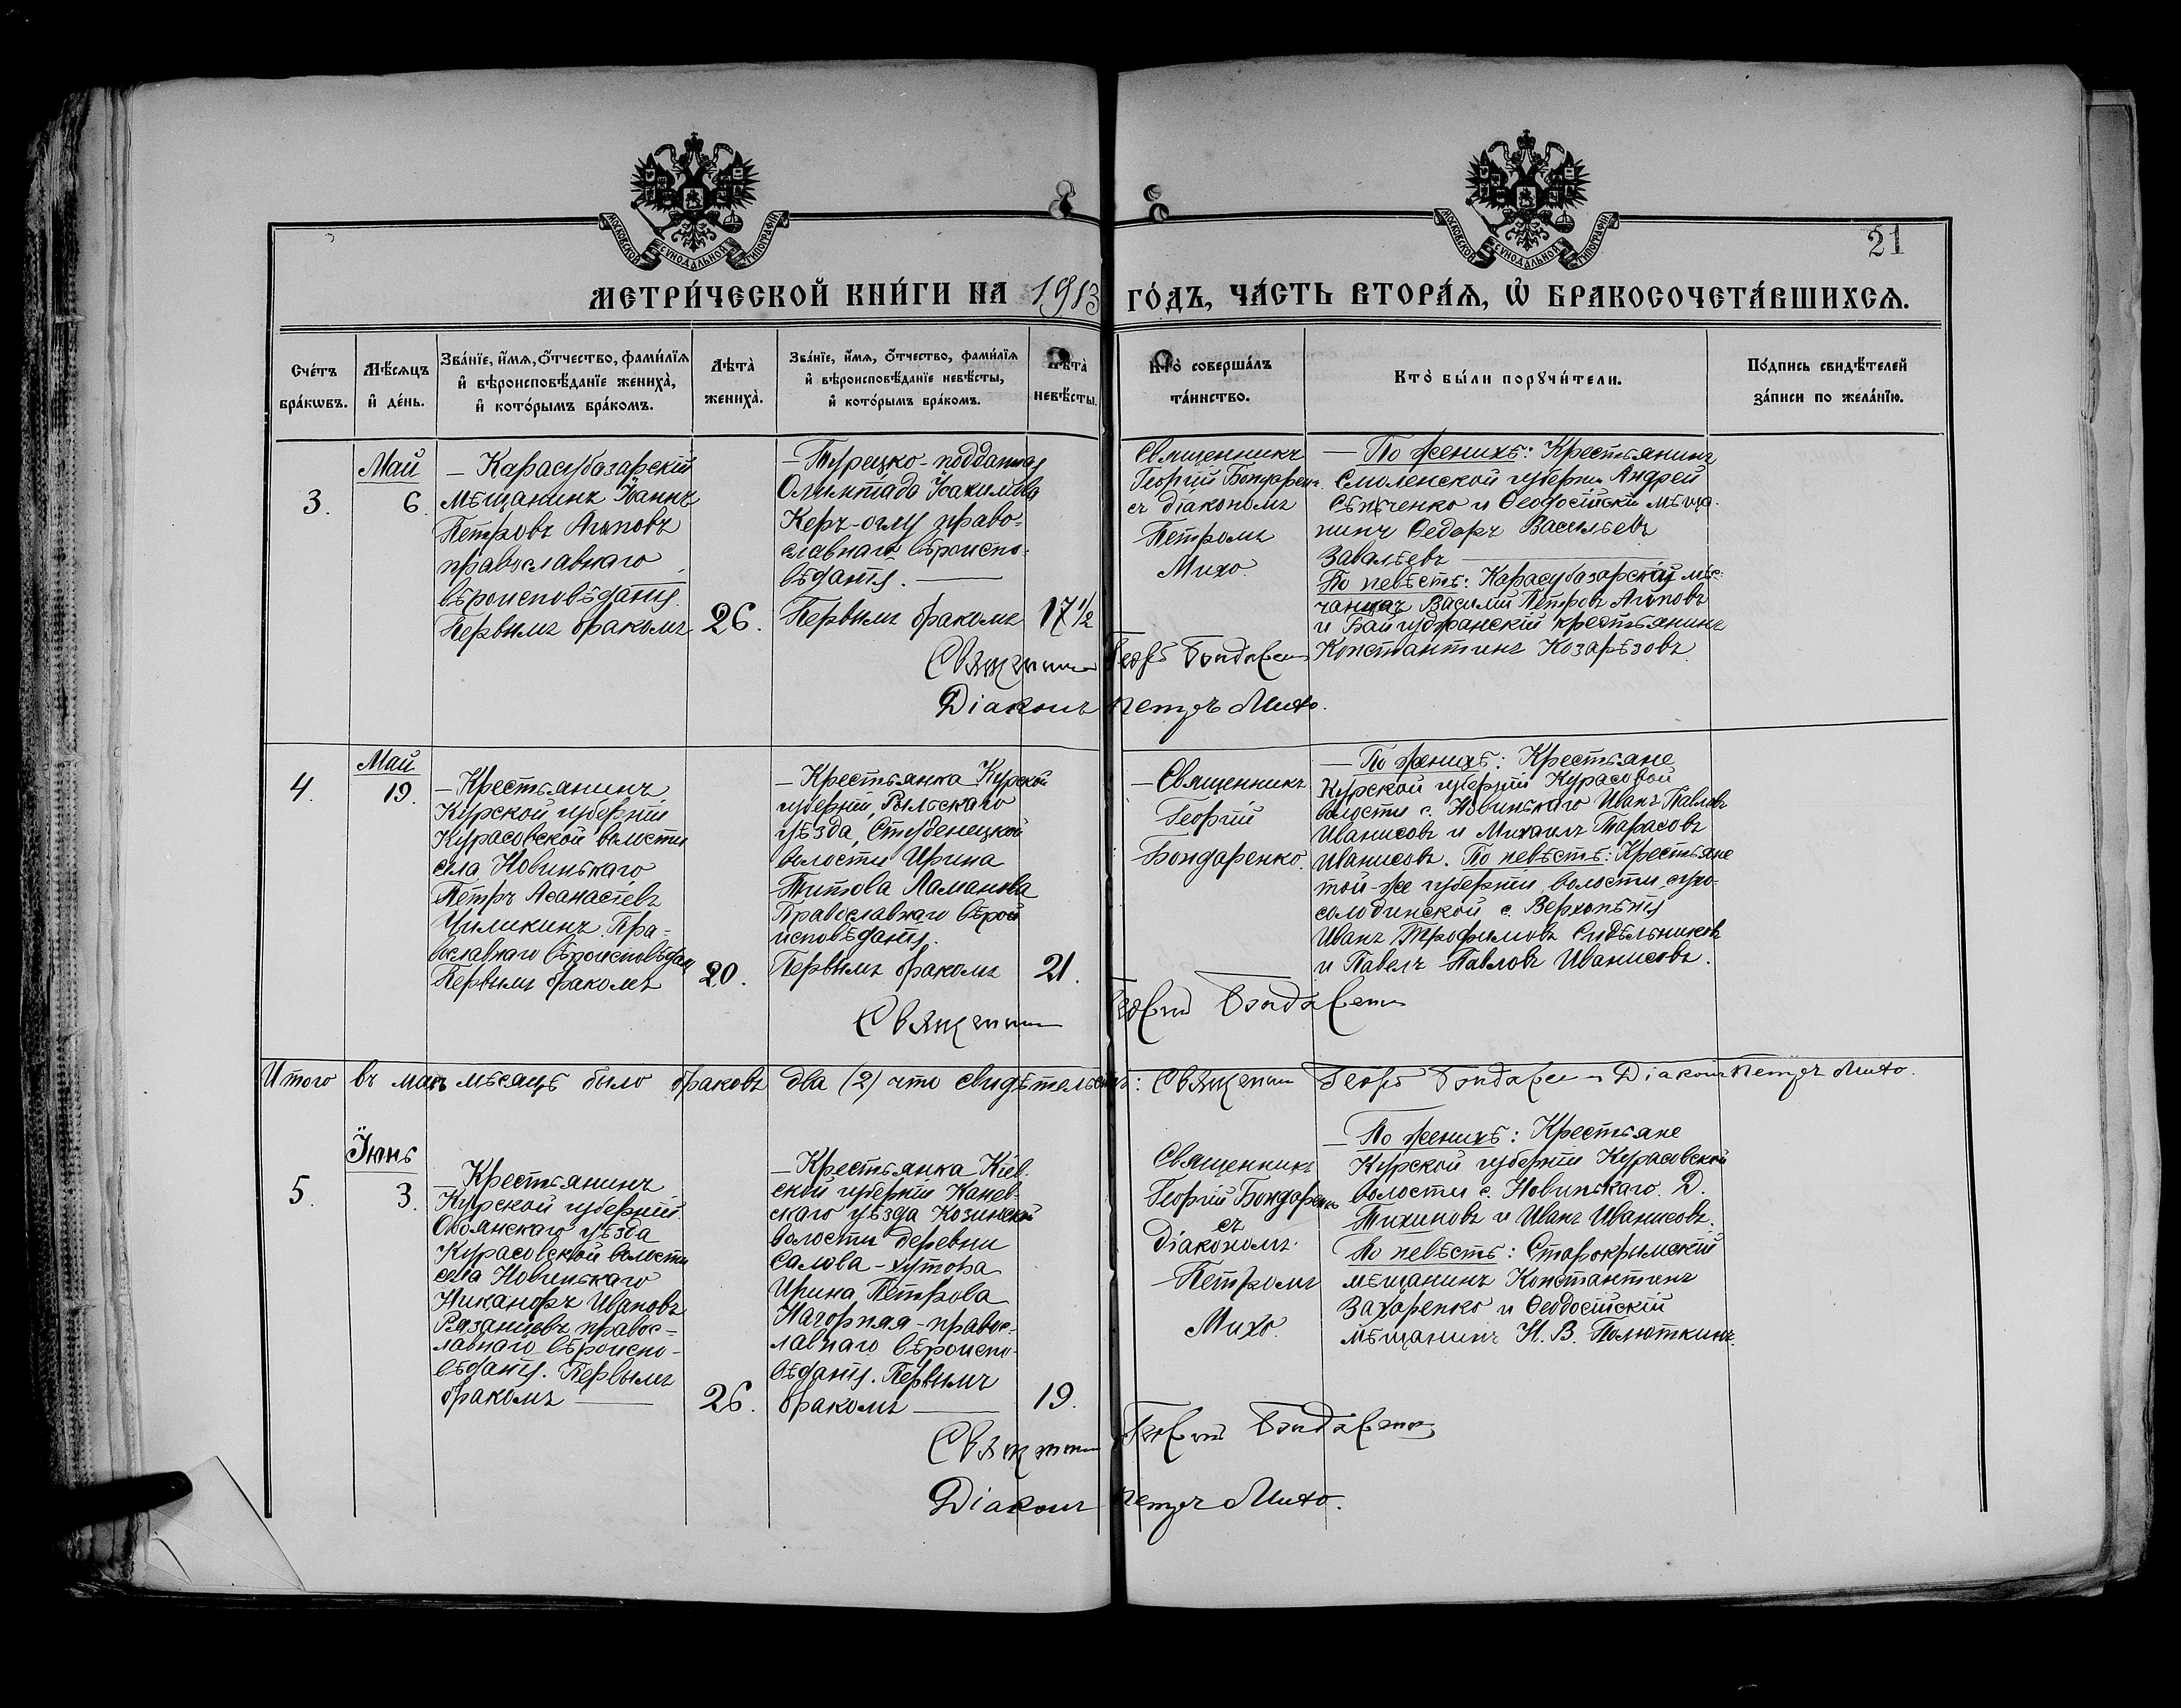 МОСКОВСКОЙ СѴНОДАЛЬНОЙ ТИПОГРАФІИ
МОСКОВСКОЙ СѴНОДАЛЬНОЙ ТИПОГРАФІИ
21
МЕТРИ́ЧЕСКОЙ КНИ́ГИ НА 1913 ГО́ДЪ, ЧА́СТЬ ВТОРА́Ѧ, Ѡ҆ БРАКОСОЧЕТА́ВШИХСѦ.
Сче́тъ
бра́кѡвъ.
Мѣ́сяцъ
и҆ де́нь.
Зва́нїе, и҆́мѧ, ѻ҆́тчество, фами́лїѧ
и҆ вѣроисповѣ́данїе жениха̀,
и҆ кото́рымъ бра́комъ.
Лѣта̀
жениха̀.
Зва́нїе, и҆́мѧ, ѻ҆́тчество, фами́лїѧ
и҆ вѣроисповѣ́данїе невѣ́сты,
и҆ кото́рымъ бра́комъ.
Лѣта̀
невѣ́сты.
Кто̀ соверша́лъ
та́инство.
Кто̀ бы́ли порꙋчи́тели.
По́дпись свидѣ́телей
за́писи по жела́нїю.
3.
Май
6.
— Карасубазарскій
мѣщанинъ Іоаннъ
Петровъ Агоповъ
православнаго
вѣроисповѣданія.
Первымъ бракомъ
26.
— Турецко-подданная
Олимпіада Іоакимова
Керъ-оглу право-
славнаго вѣроиспо-
вѣданія.
Первымъ бракомъ
17 1/2
Священникъ
Георгій Бондаренко
съ діакономъ
Петромъ
Михо.
— По женихѣ: Крестьянинъ
Смоленской губерніи Андрей
и Ѳеодосійскій мѣща-
нинъ Ѳедоръ Васильевъ
Завалѣевъ
По невѣстѣ: Карасубазарскій мѣ-
Василій Петровъ Агоповъ
и крестьянинъ
Константинъ Козарѣзовъ.
Священникъ Георгій Бондаренко
Діаконъ Петръ Михо.
4.
Май
19.
— Крестьянинъ
Курской губерніи
Курасовской волости
села Новинькаго
Петръ Аѳанасіевъ
Чиликинъ. Пра-
вославнаго вѣроисповѣдан.
Первымъ бракомъ
20.
— Крестьянка Курской
губерніи, Рыльскаго
уѣзда, Студенецкой
волости Ирина
Титова Ламанова
Православнаго вѣрои
исповѣданія.
Первымъ бракомъ
21.
— Священникъ
Георгій
Бондаренко.
— По женихѣ: Крестьяне
Курской губерніи Курасовой
волости с. Новинькаго Иванъ Павловъ
Иванисовъ и Михаилъ Тарасовъ
Иванисовъ. По невѣстѣ: Крестьяне
той-же губерніи, волости
солодинской с. Верхопѣнія
Иванъ Трофимовъ Сидѣльниковъ
и Павелъ Павловъ Иванисовъ.
Священникъ Георгій Бондаренко
Итого въ маѣ мѣсяцѣ было браковъ два (2) что свидѣтельств: Священникъ Георгій Бондаренко Діаконъ Петръ Михо.
5.
Іюнь
3.
Крестьянинъ
Курской губерніи
Обоянскаго уѣзда
Курасовской волости
села Новинькаго
Никаноръ Ивановъ
Рязанцевъ, правос-
лавнаго вѣроиспо-
вѣданія. Первымъ
бракомъ
26.
— Крестьянка Кіев-
ской губерніи Канев-
скаго уѣзда Козинской
волости деревни
Салова-хутора
Ирина Петрова
Нагорная - правос-
лавнаго вѣроиспо-
вѣданія. Первымъ
бракомъ
19.
Священникъ
Георгій Бондаренко
съ
діакономъ
Петромъ
Михо.
— По женихѣ: Крестьяне
Курской губерніи Курасовской
волости с. Новинькаго. Д.
Тихиновъ и Иванъ Иванисовъ.
По невѣстѣ: Старокрымскій
мѣщанинъ Константинъ
Захаренко и Ѳеодосійскій
мѣщанинъ Н. В. Полюткинъ.
Священникъ Георгій Бондаренко
Діаконъ Петръ Михо.